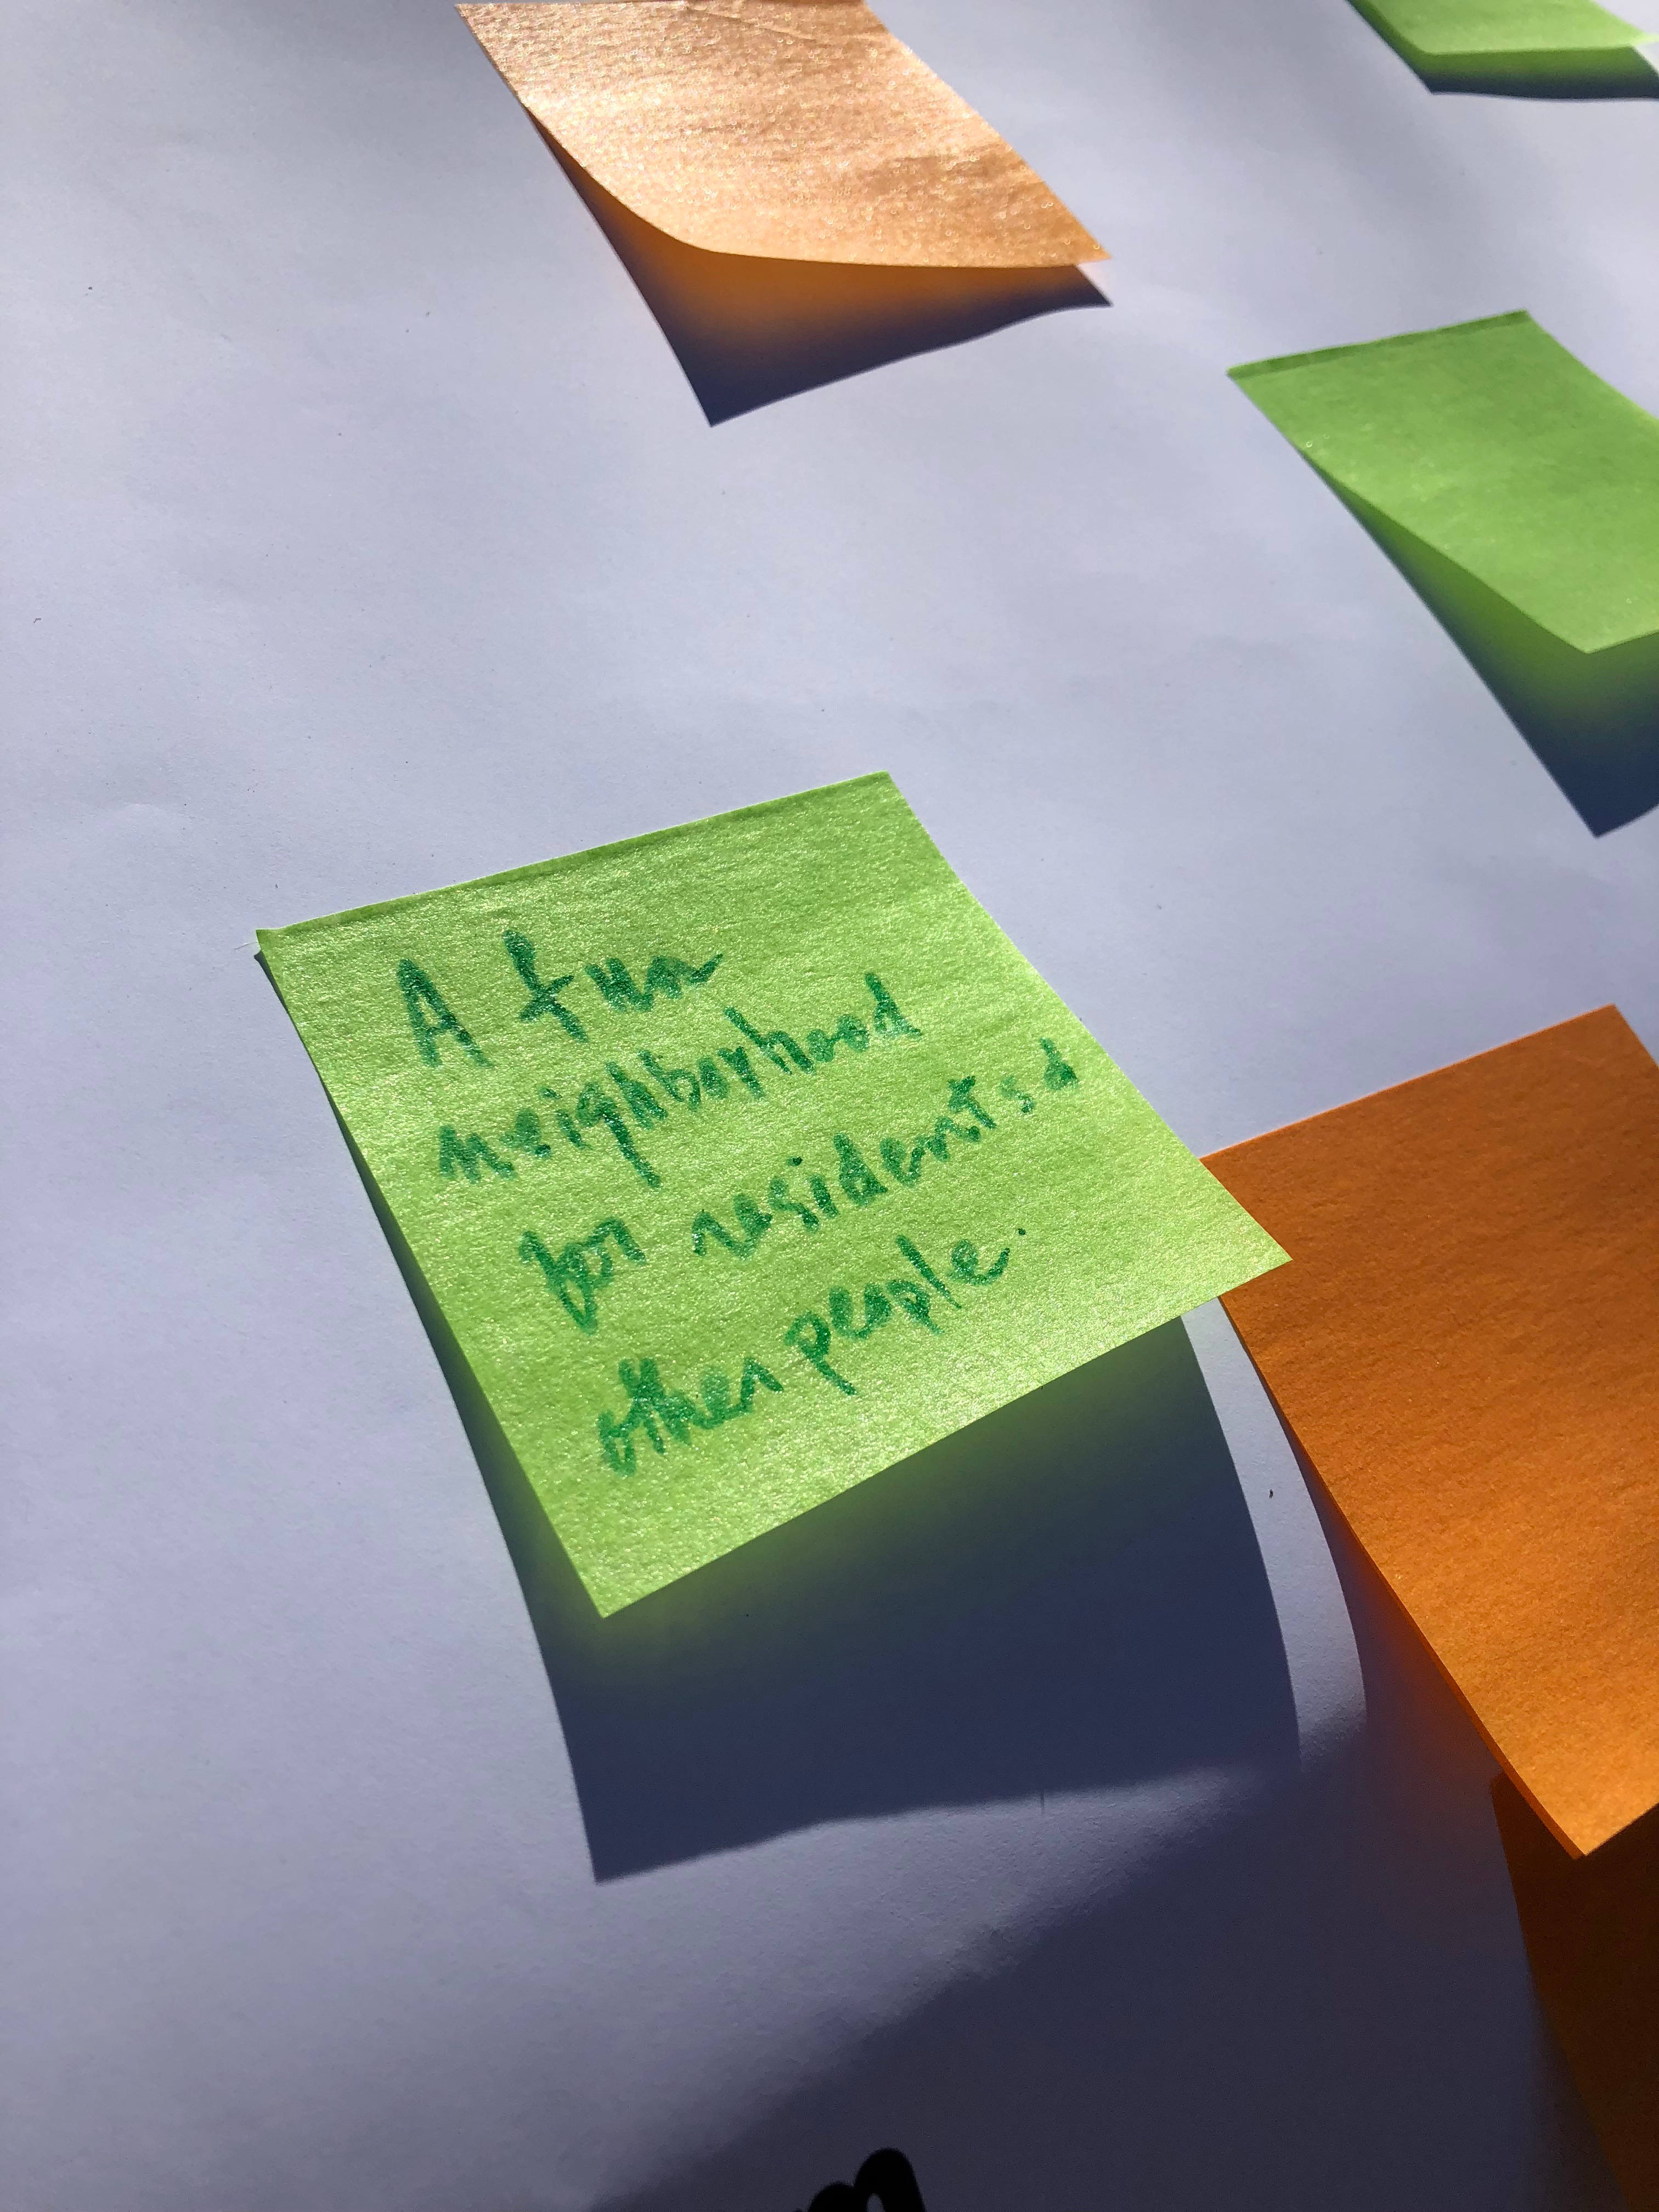 A fun
neighborhood
for residents &
other people.